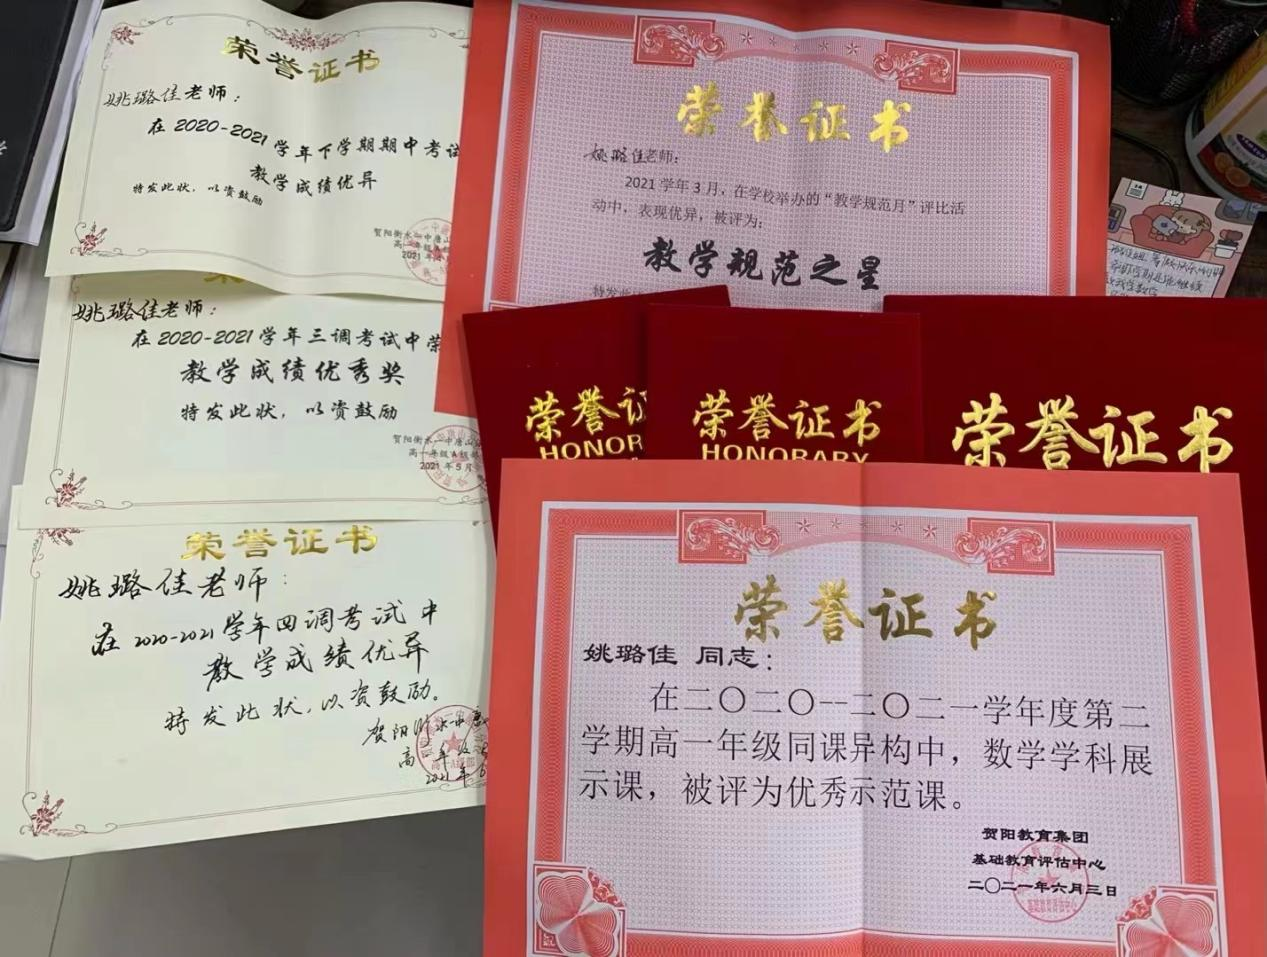 荣誉证书
姚璐佳老师：
在2020-2021学年下学期期中考试
教学成绩优异
特发此状，以资鼓励
贺阳衡水一中唐山
高一年级A
2021年
姚璐佳老师：
在2020-2021学年三调考试中荣
教学成绩优秀奖
特发此状，以资鼓励
贺阳衡水一中唐山
高一年级A级部
2021年5月
荣誉证书
姚璐佳老师：
在2020-2021学年四调考试中
教学成绩优异
特发此状，以资鼓励。
贺阳衡水一中唐
高一年级
2021年6
荣誉证书
姚璐佳老师：
2021学年3月，在学校举办的“教学规范月”评比活
动中，表现优异，被评为：
教学规范之星
特发此
荣誉证
HONOR
荣誉证书
HONORARY
荣誉证书
荣誉证书
姚璐佳 同志：
在二〇二〇--二〇二一学年度第二
学期高一年级同课异构中，数学学科展
示课，被评为优秀示范课。
贺阳教育集团
基础教育评估中心
二〇二一年六月三日